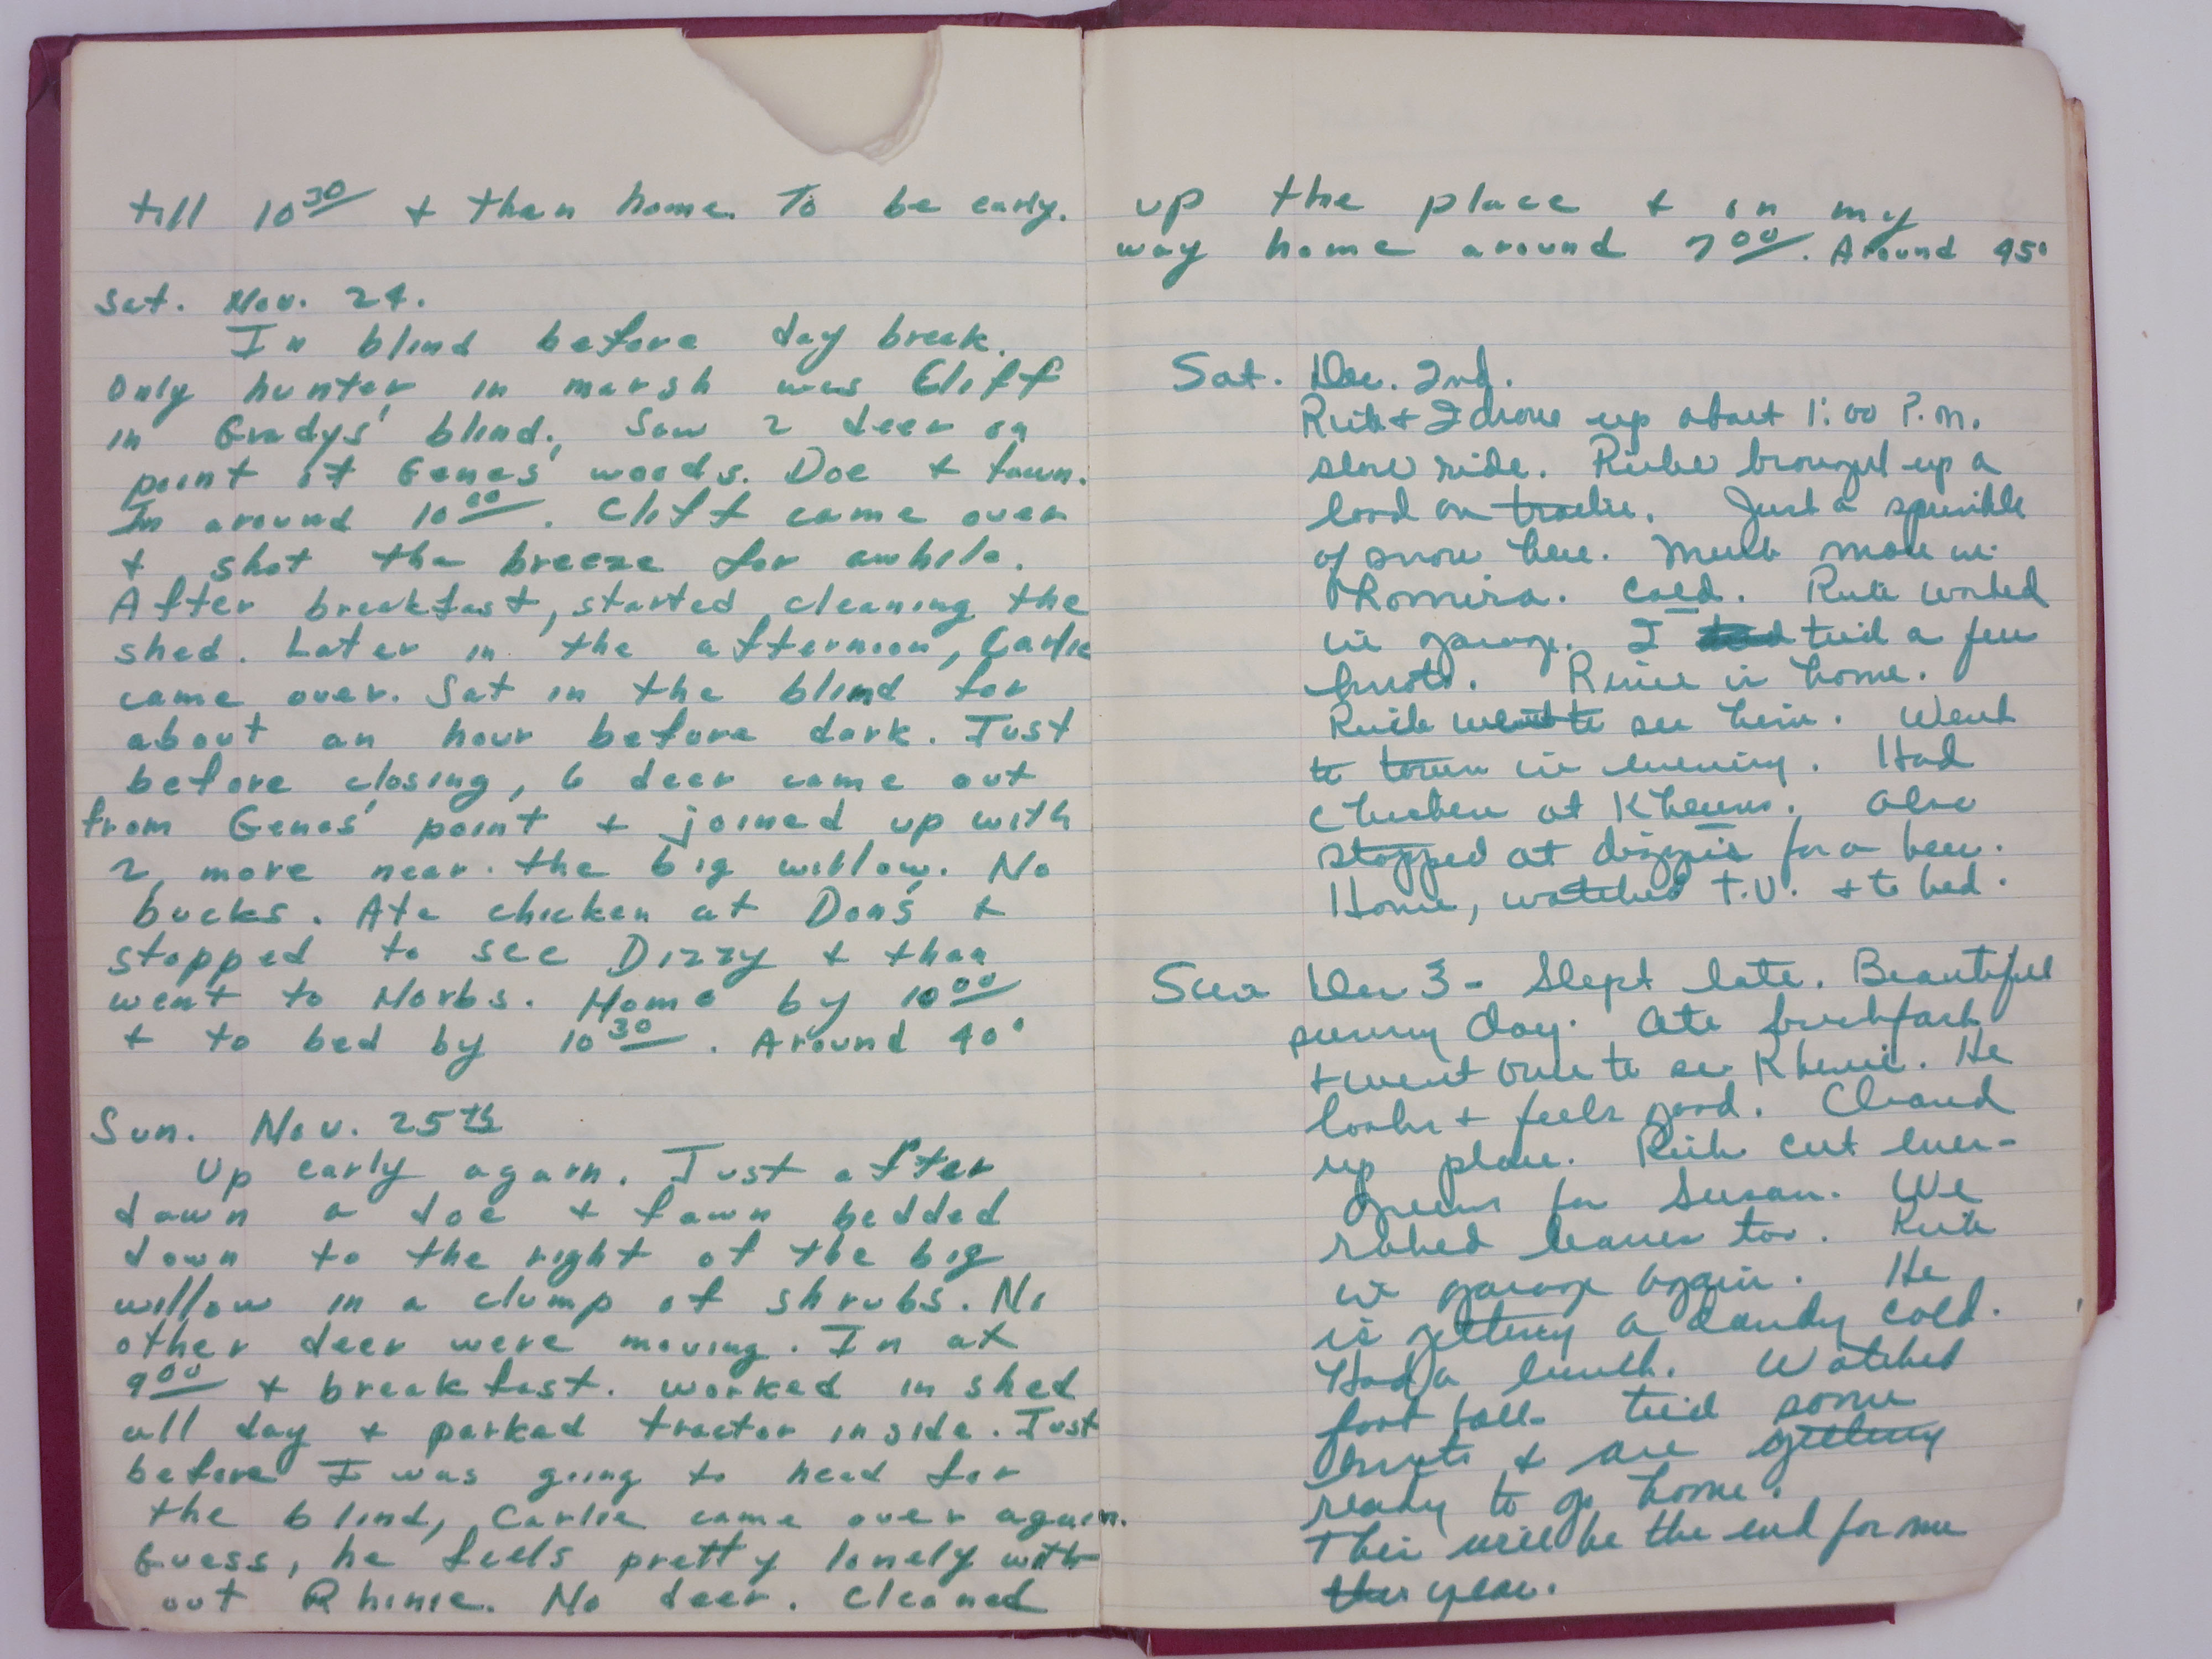 till 10 30 + then home. To be early.
Sat. Nov. 24.
In blind before day break.
Only hunter in marsh was Cliff
in Gradys' blind. Saw 2 deer on
point of Genes' woods. Doe + fawn.
In around 10 00. Cliff came over
+ shot the breeze for awhile.
After breakfast, started cleaning the
shed. Later in the afternoon, Carlie
came over. Sat in the blind for
about an hour before dark. Just
before closing, 6 deer came out
from Genes' point + joined up with
2 more near the big willow. No
bucks. Ate chicken at Dons' +
stopped to see Dizzy + then
went to Norbs. Home by 10 00
+ to bed by 10 30. Around 40°
Sun. Nov. 25th
Up early again. Just after
dawn a doe + fawn bedded
down to the right of the big
willow in a clump of shrubs. No
other deer were moving. In at
9 00 + breakfast. Worked in shed
all day + parked tractor inside. Just
before I was going to head for
the blind, Carlie came over again.
Guess, he feels pretty lonely with-
out Rhinie. No deer. Cleaned
up the place + on my
way home around 7 00. Around 45°
Sat. Dec. 2nd.
+ I drove up about 1:00 P.M.
slow ride. brought up a
load on trailer. Just a sprinkle
of snow here. Much more in
Lomira. Cold. worked
in garage. I tied a few
knots. is home.
went to see him. Went
to town in evening. Had
chicken at Also
stopped at dizzys for a beer.
Home, watched T.V. + to bed.
Sun Dec 3 - Slept late. Beautiful
sunny day. Ate breakfast
+ went over to see Rhinie. He
looks + feels good. Cleaned
up place. cut ever-
greens for Susan. We
raked leaves too.
in garage again. He
is getting a dandy cold.
Had a lunch. Watched
foot ball tied some
knots + are getting
ready to go home.
This will be the end for me
this year.